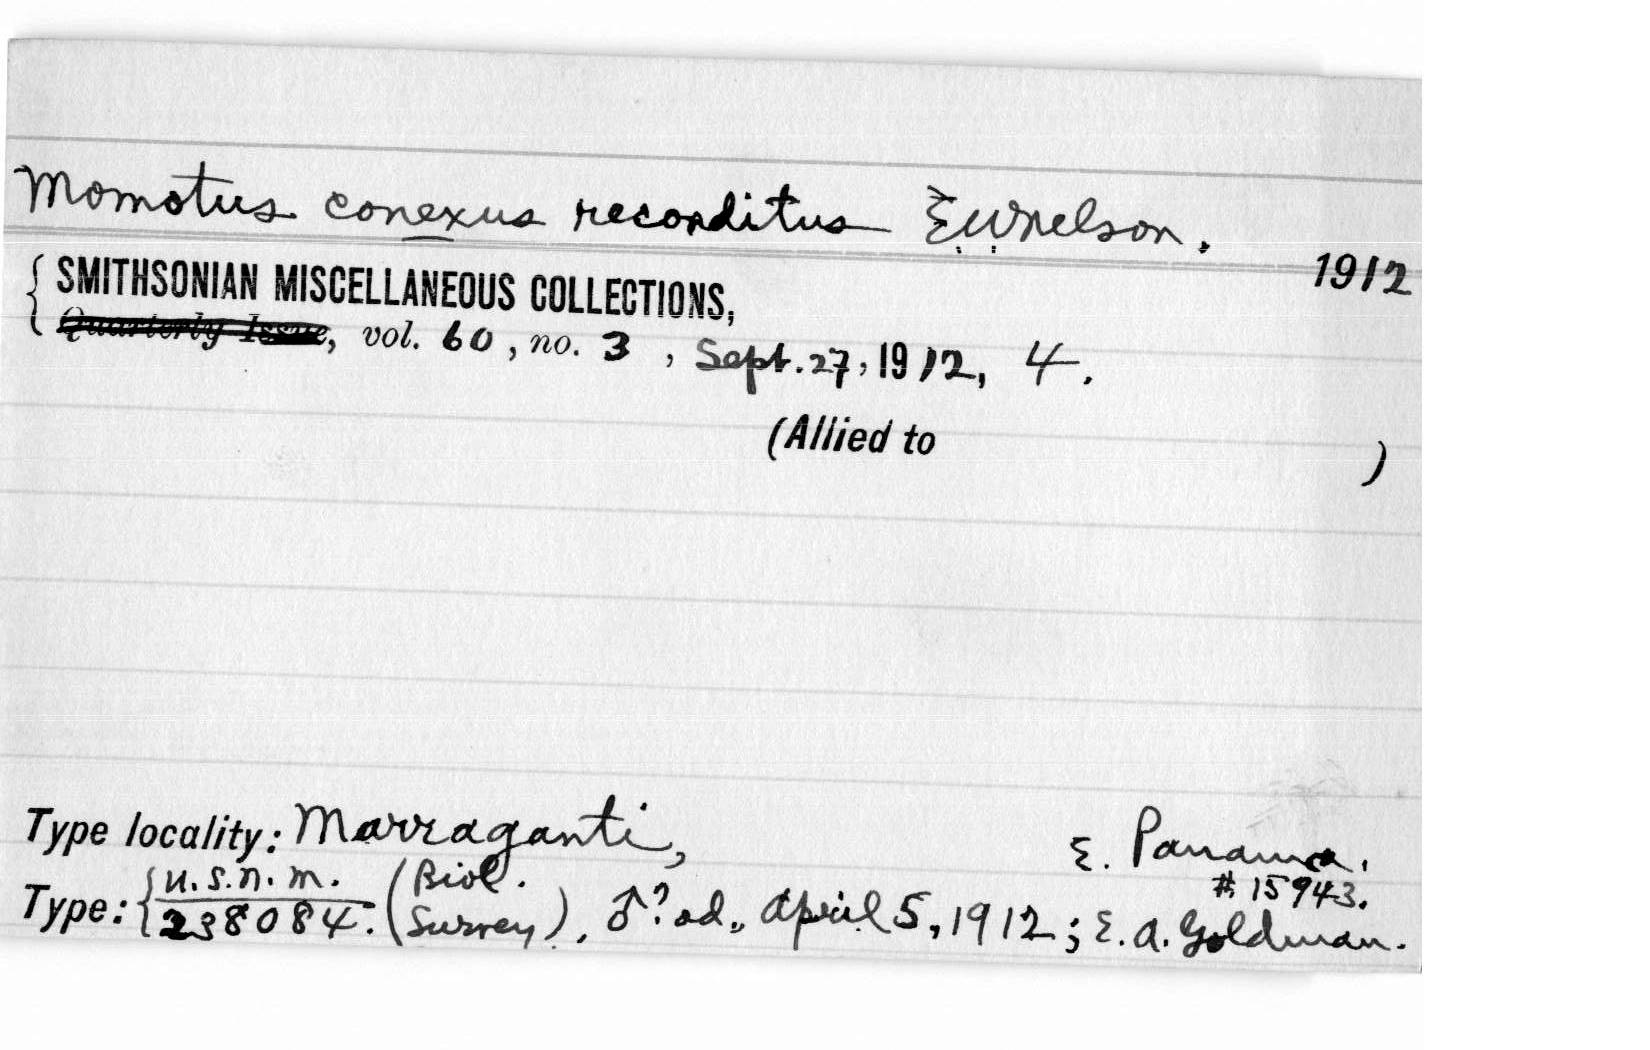 Momotus conexus reconditus EWNelson.
1912
SMITHSONIAN MISCELLANEOUS COLLECTIONS,
Quarterly Issue, vol. 60, no. 3, Sept. 27, 1912, 4.
(Allied to )
Type locality: Marraganti, E. Panama.
#15943.
Type: {U.S.N.M. 238084. (Biol. Survey), ♂? ad., April 5, 1912; E. A. Goldman.